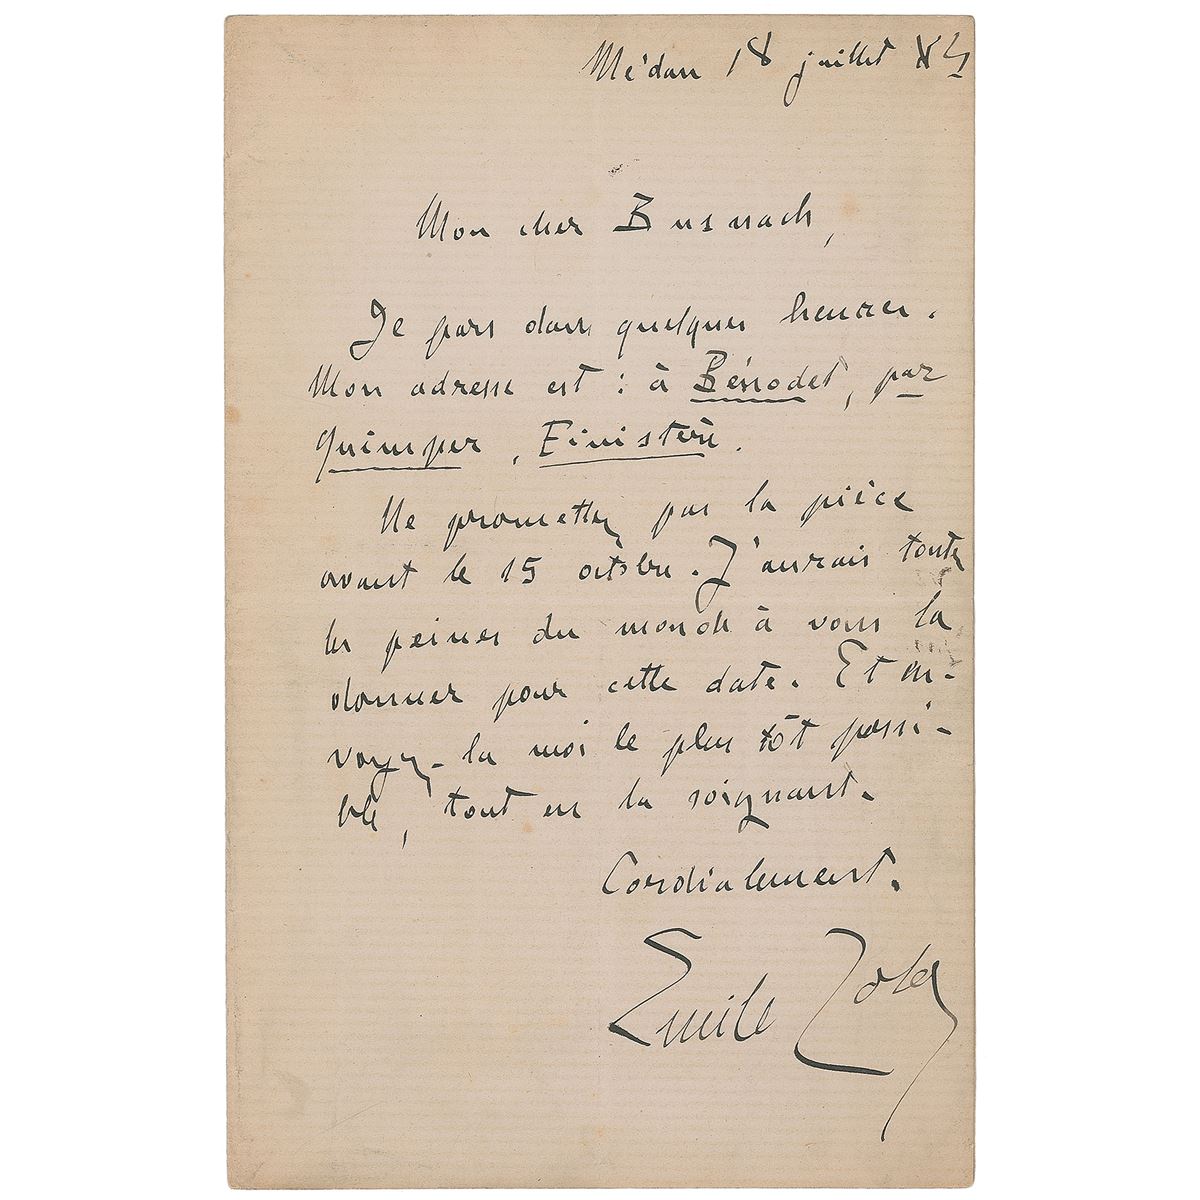 Médan 18 juillet 83
Mon cher Busnach,
Je pars dans quelques heures.
Mon adresse est : à Bénodet, par
Quimper, Finistère.
Ne promettez pas la pièce
avant le 15 octobre. J'aurais toutes
les peines du monde à vous la
donner pour cette date. Et en-
voyez-la moi le plus tôt possi-
ble, tout en la soignant.
Cordialement.
Emile Zola